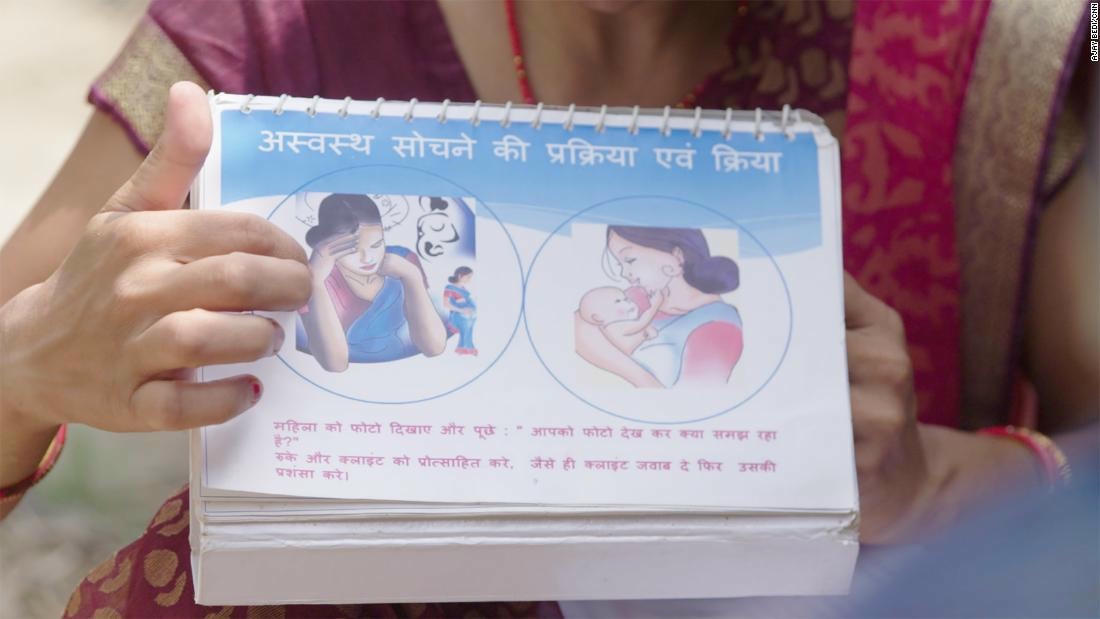 अस्वस्थ सोचने की प्रक्रिया एवं क्रिया
महिला को फोटो दिखाए और पूछे : " आपको फोटो देख कर क्या समझ रहा
है?"
रुके और क्लाइंट को प्रोत्साहित करे, जैसे ही क्लाइंट जवाब दे फिर उसकी
प्रशंसा करे।
AJAY BEDI/CNN